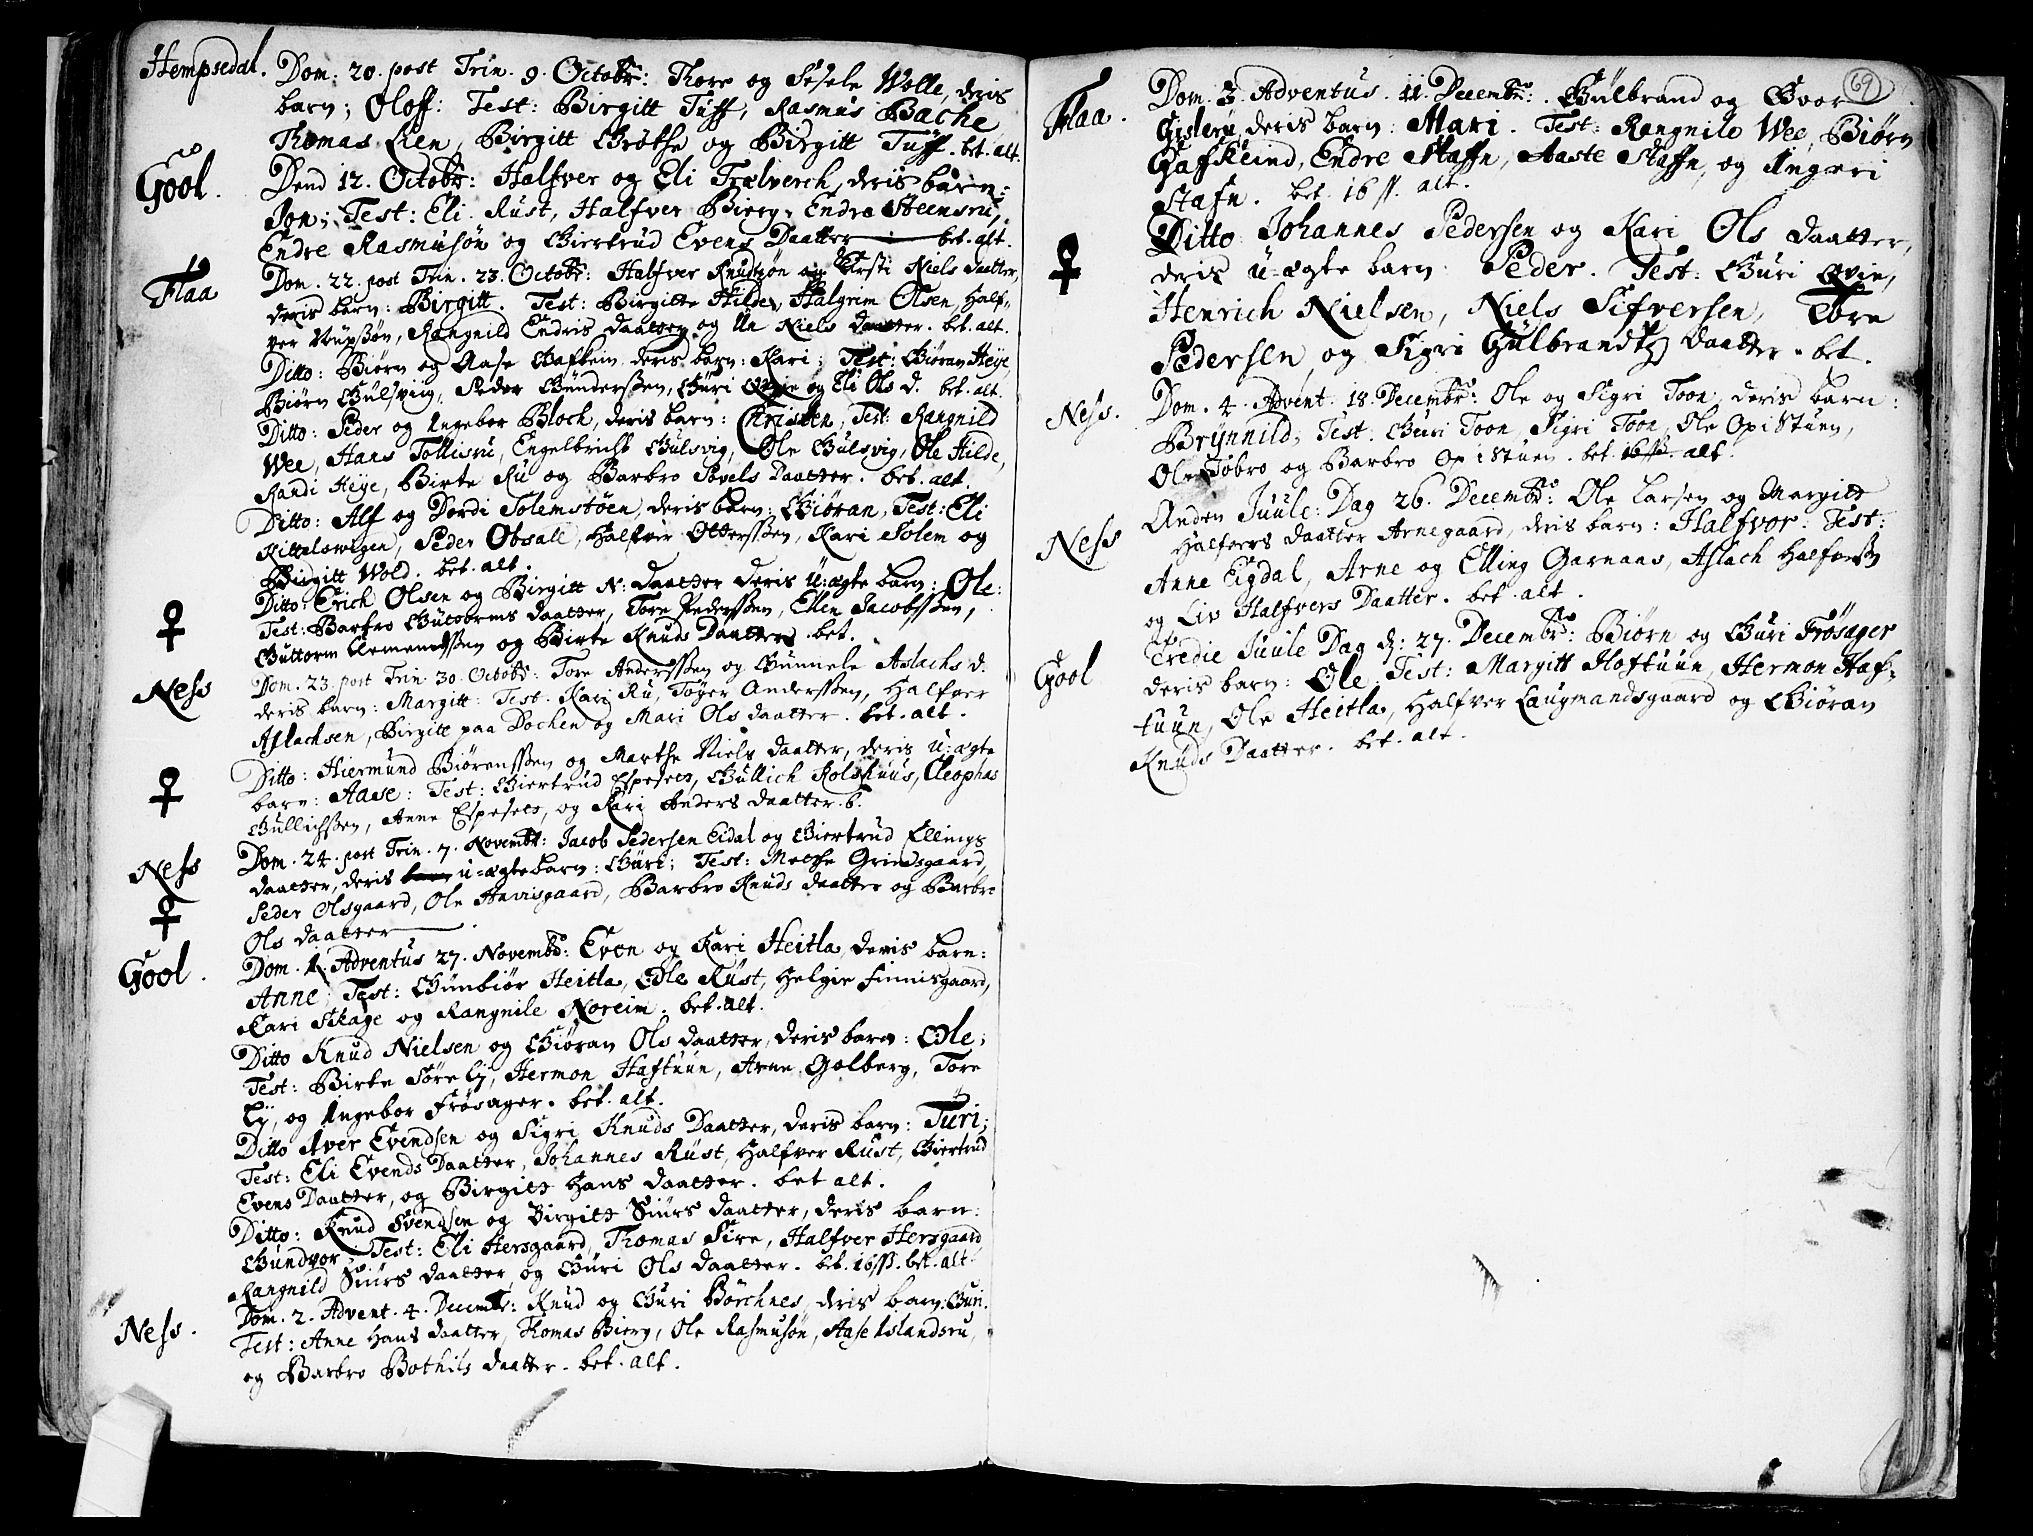 Hempsedal. Dom: 20. post Trin. 9. Octobr: Thore og Sesele Wolle, deris
barn; Oloff: Test: Birgitt Tuff, Rasmus Bache,
Thomas Lien, Birgitt Grøthe og Birgitt Tuff. bet. alt.
Gool. Dend 12. Octobr: Halfver og Eli Trælverch, deris barn:
Jon; Test: Eli Rust, Halfver Bierg, Endre Steensru,
Endre Rasmusøn og Giertrud Evens Daatter bet. alt.
Flaa Dom. 22. post Trin. 23. Octobr: Halfver Knudsøn og Kirsti Niels daatter,
deris barn: Birgitt. Test: Birgitte Hilde, Halgrim Olsen, Half-
ver, Rangnild Endris daatter og Un Niels daatter. bet. alt.
Ditto: Biørn og Aase Gafkein deris barn: Kari; Test: Giøran Heye,
Biørn Gulsvig, Peder Gunderssen, Guri og Eli Ols d. bet. alt.
Ditto: Peder og Ingebor Bloch, deris barn: Christen, Test: Rangnild
Wee, Hans Tollisru, Engelbricht Gulsvig, Ole Gulsvig, Ole Hilde,
Randi Heye, Birte Ru og Barbro Povels Daatter. bet. alt.
Ditto: Alf og Dordi Solemstøen, deris barn: Giøran, Test: Eli
Kittelsvigen, Peder Obsale, Halfver Otterssen, Kari Solem og
Birgitt Wold. bet. alt.
♀ Ditto: Erich Olsen og Birgitt N: daatter deris u:ægte barn: Ole:
Test: Barbro Gutorms daatter, Tore Pederssen, Ellen Jacobssen,
Guttorm Clemendssen og Birte Knuds Daatter. bet.
Ness Dom. 23. post Trin. 30. Octobr: Tore Anderssen og Gunnele Aslachs d.
deris barn: Margitt: Test. Kari Ru, Toger Anderssen, Halfver
Aslachsen, Birgitt paa Dochen og Mari Ols daatter. bet. alt.
♀ Ditto: Hiermund Biørenssen og Marthe Niels daatter, deris u:ægte
barn: Aase: Test: Giertrud Espeset, Gullich Rolshuus, Cleophas
Gullichssen, Anne Espeset, og Kari Anders daatter. b.
Ness Dom. 24. post Trin. 7. Novembr: Jacob Pedersen Eidal og Giertrud Ellings
♀ daatter, deris barn u-ægte barn: Guri; Test: Mette Grimsgaard,
Peder Olsgaard, Ole Havisgaard, Barbro Knuds daatter og Barbro
Ols daatter
Gool. Dom. 1. Adventus 27. Novembr: Even og Kari Heitla, deris barn:
Anne; Test: Gunbiør Heitla, Ole Rust, Helgie Finnisgaard,
Kari Skage og Rangnile Noreim. bet. alt.
Ditto Knud Nielsen og Giøran Ols daatter, deris barn: Ole;
Test: Birte Søre Lj, Hermon Haftuun, Arne Golberg, Tore
Lj, og Ingebor Frøsager. bet. alt.
Ditto Iver Evendsen og Sigri Knuds Daatter, deris barn: Turi;
Test: Eli Evends Daatter, Johannes Rust, Halfver Rust, Giertrud
Evens Daatter, og Birgitt Hans daatter. bet alt.
Ditto: Knud Svendsen og Birgitt Siurs daatter, deris barn:
Gundvor; Test: Eli Hersgaard, Thomas Sire, Halfver Hersgaard
Rangnild Siurs daatter, og Guri Ols daatter. bet. 16 ss. bet. alt.
Ness. Dom. 2. Advent. 4. Decembr: Knud og Guri Børchnes, deris barn: Guri.
Test: Anne Hans daatter, Thomas Bierg, Ole Rasmusøn, Aase Islandsru,
og Barbro Bothils daatter. bet. alt.
69
Flaa. Dom. 3. Adventus. 11. Decembr: Gulbrand og Gvor
Gisleru, deris barn: Mari. Test: Rangnile Wee, Biørn
Gafkeind, Endre Staffn, Aaste Staffn, og Ingeri
Stafn. bet. 16 ss. alt.
♀ Ditto Johannes Pedersen og Kari Ols daatter,
deris u-ægte barn: Peder. Test: Guri Qvie,
Henrich Nielsen, Niels Sifversen, Tore
Pedersen og Sigri Gulbrands daatter. bet.
Ness. Dom. 4. Advent. 18. Decembr: Ole og Sigri Toon, deris barn:
Brynnild; Test. Guri Toon, Sigri Toon, Ole Opistuen,
Ole Jobro og Barbro Opistuen. bet. 16 ss. alt.
Ness Anden Juule: Dag 26. Decembr: Ole Larsen og Margitt
Halfvers daatter Arnegaard, deris barn: Halfvor: Test:
Anne Eigdal, Arne og Elling Garnaas, Aslach Halfvers
og Liv Halfvers Daatter. bet. alt.
Gool Tredie Juule Dag d: 27. Decembr: Biørn og Guri Frøsager
deris barn: Ole; Test: Margitt Hoftuun, Hermon Haf-
tuun, Ole Heitla, Halfver Laugmandsgaard og Giøran
Knuds Daatter. bet. alt.